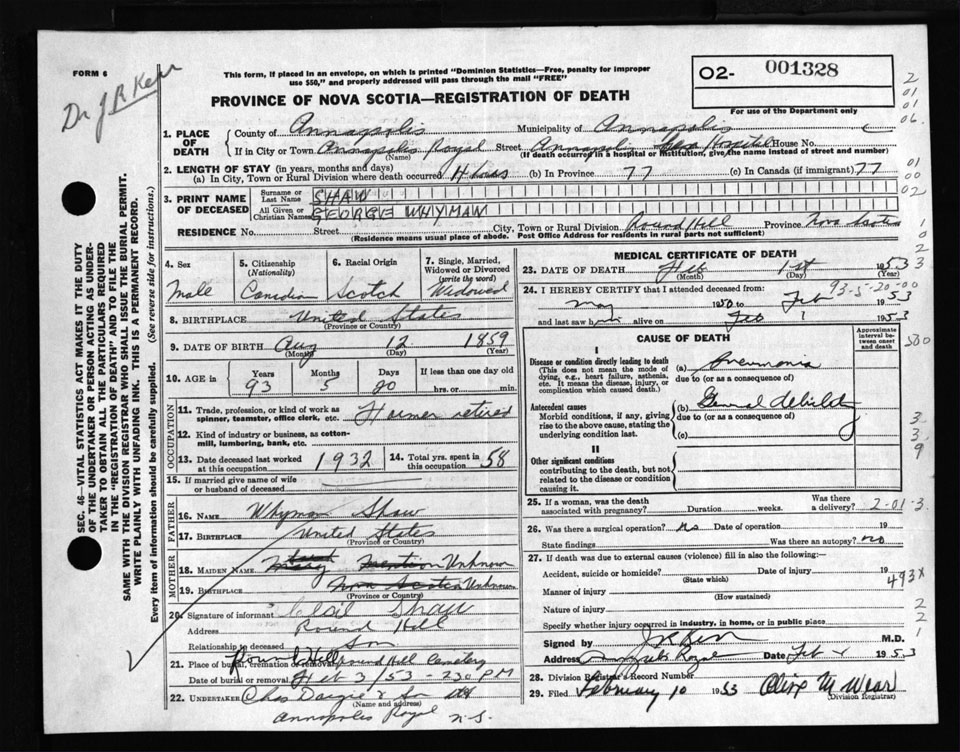 FORM 6
Dr J R Kerr
This form, if placed in an envelope, on which is printed "Dominion Statistics—Free, penalty for improper
use $50," and properly addressed will pass through the mail "FREE"
PROVINCE OF NOVA SCOTIA—REGISTRATION OF DEATH
O2- 001328
For use of the Department only
2
01
01
06.
1. PLACE OF DEATH
County of Annapolis Municipality of Annapolis
If in City or Town Annapolis Royal Street Annapolis Hospital House No.
(Name) (If death occurred in a hospital or institution, give the name instead of street and number)
2. LENGTH OF STAY (in years, months and days)
(a) In City, Town or Rural Division where death occurred (b) In Province 77 (c) In Canada (if immigrant) 77
01
00
02
3. PRINT NAME OF DECEASED
Surname or Last Name SHAW
All Given or Christian Names GEORGE WHYMAN
RESIDENCE No. Street City, Town or Rural Division Round Hill Province Nova Scotia
(Residence means usual place of abode. Post Office Address for residents in rural parts not sufficient)
SEC. 46—VITAL STATISTICS ACT MAKES IT THE DUTY
OF THE UNDERTAKER OR PERSON ACTING AS UNDER-
TAKER TO OBTAIN ALL THE PARTICULARS REQUIRED
IN THE "REGISTRATION OF DEATH" AND TO FILE THE
SAME WITH THE DIVISION REGISTRAR WHO SHALL ISSUE THE BURIAL PERMIT.
WRITE PLAINLY WITH UNFADING INK. THIS IS A PERMANENT RECORD.
Every item of information should be carefully supplied. (See reverse side for instructions.)
4. Sex Male
5. Citizenship (Nationality) Canadian
6. Racial Origin Scotch
7. Single, Married, Widowed or Divorced (write the word) Widowed
8. BIRTHPLACE United States
(Province or Country)
9. DATE OF BIRTH Aug 12 1859
(Month) (Day) (Year)
10. AGE in Years Months Days If less than one day old
93 5 20 hrs. or min.
OCCUPATION
11. Trade, profession, or kind of work as
spinner, teamster, office clerk, etc. Farmer retired
12. Kind of industry or business, as cotton-
mill, lumbering, bank, etc.
13. Date deceased last worked
at this occupation 1932
14. Total yrs. spent in
this occupation 58
15. If married give name of wife
or husband of deceased
FATHER
16. NAME Whyman Shaw
17. BIRTHPLACE United States
(Province or Country)
MOTHER
18. MAIDEN NAME Mary Unknown
19. BIRTHPLACE Nova Scotia Unknown
(Province or Country)
20. Signature of informant Shaw
Address Round Hill
Relationship to deceased Son
21. Place of burial, cremation or removal Round Hill Round Hill Cemetery
Date of burial or removal Feb 3/53 - 2.30 PM
22. UNDERTAKER Chas Dargie & Son
(Name and address)
Annapolis Royal N.S.
MEDICAL CERTIFICATE OF DEATH
23. DATE OF DEATH Feb 1st 1953
(Month) (Day) (Year)
93-5-20-00
24. I HEREBY CERTIFY that I attended deceased from:
May 1950 to Feb 1953
and last saw him alive on Feb 1 1953
CAUSE OF DEATH
Approximate interval between onset and death
I
Disease or condition directly leading to death
(This does not mean the mode of
dying, e.g., heart failure, asthenia,
etc. It means the disease, injury, or
complication which caused death.)
(a) Pneumonia
due to (or as a consequence of)
Antecedent causes
Morbid conditions, if any, giving
rise to the above cause, stating the
underlying condition last.
(b) General debility
due to (or as a consequence of)
(c)
II
Other significant conditions
contributing to the death, but not
related to the disease or condition
causing it.
25. If a woman, was the death
associated with pregnancy? Duration weeks. Was there a delivery?
2-01-3
26. Was there a surgical operation? No Date of operation 19
State findings Was there an autopsy? no
27. If death was due to external causes (violence) fill in also the following:—
Accident, suicide or homicide? Date of injury 19
(State which)
493X
Manner of injury
(How sustained)
Nature of injury
Specify whether injury occurred in industry, in home, or in public place
Signed by J R Kerr M.D.
Address Annapolis Royal Date Feb 1953
28. Division Registrar's Record No.
29. Filed February 10 1953 Olive M Wear
(Division Registrar)